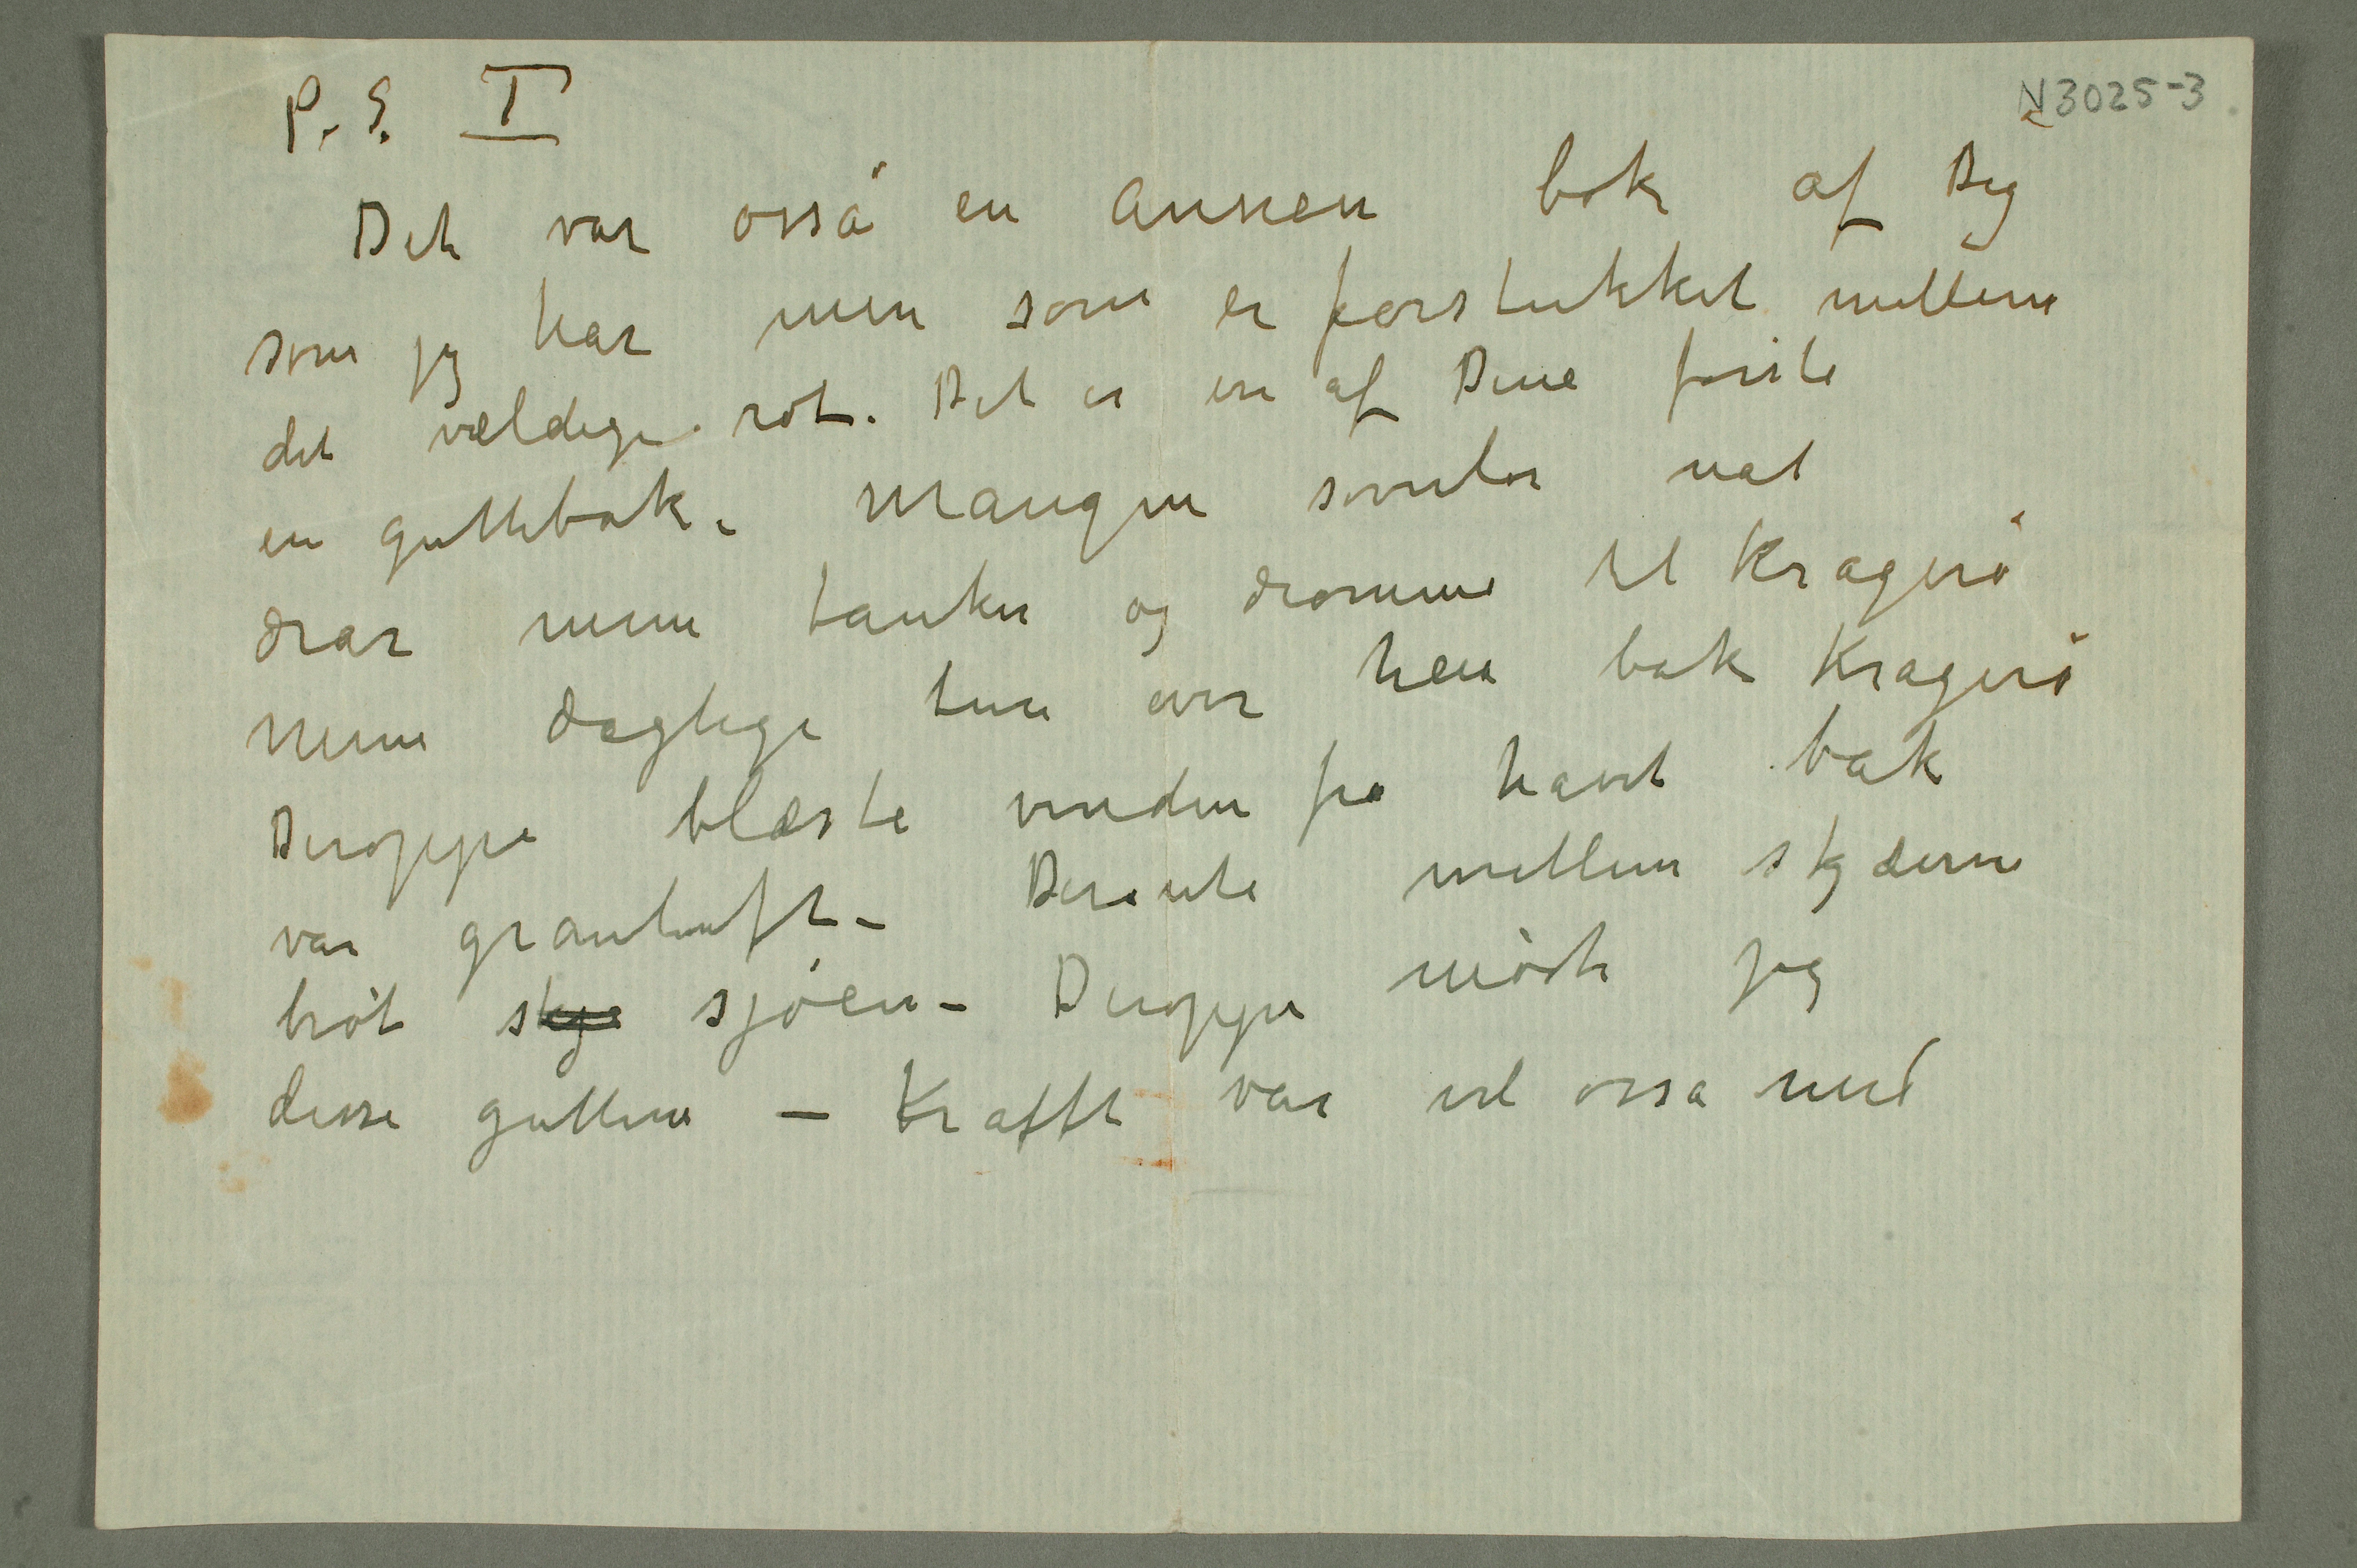 N 3025-3
P. S. I
Det var osså en annen bok af Dig
som jeg har men som er forstukket mellem
det vældige rot. Det er en af Dine første
en guttebok. Mangen søvnløs nat
drar mine tanker og drømme til Kragerø
Mine daglige ture over hei bak Kragerø
Deroppe blæste vinden fra havet bak
var granluft – Derute mellem skjærene
brøt skje sjøen – Deroppe mødte jeg
disse guttene – Krafft var vel osså med